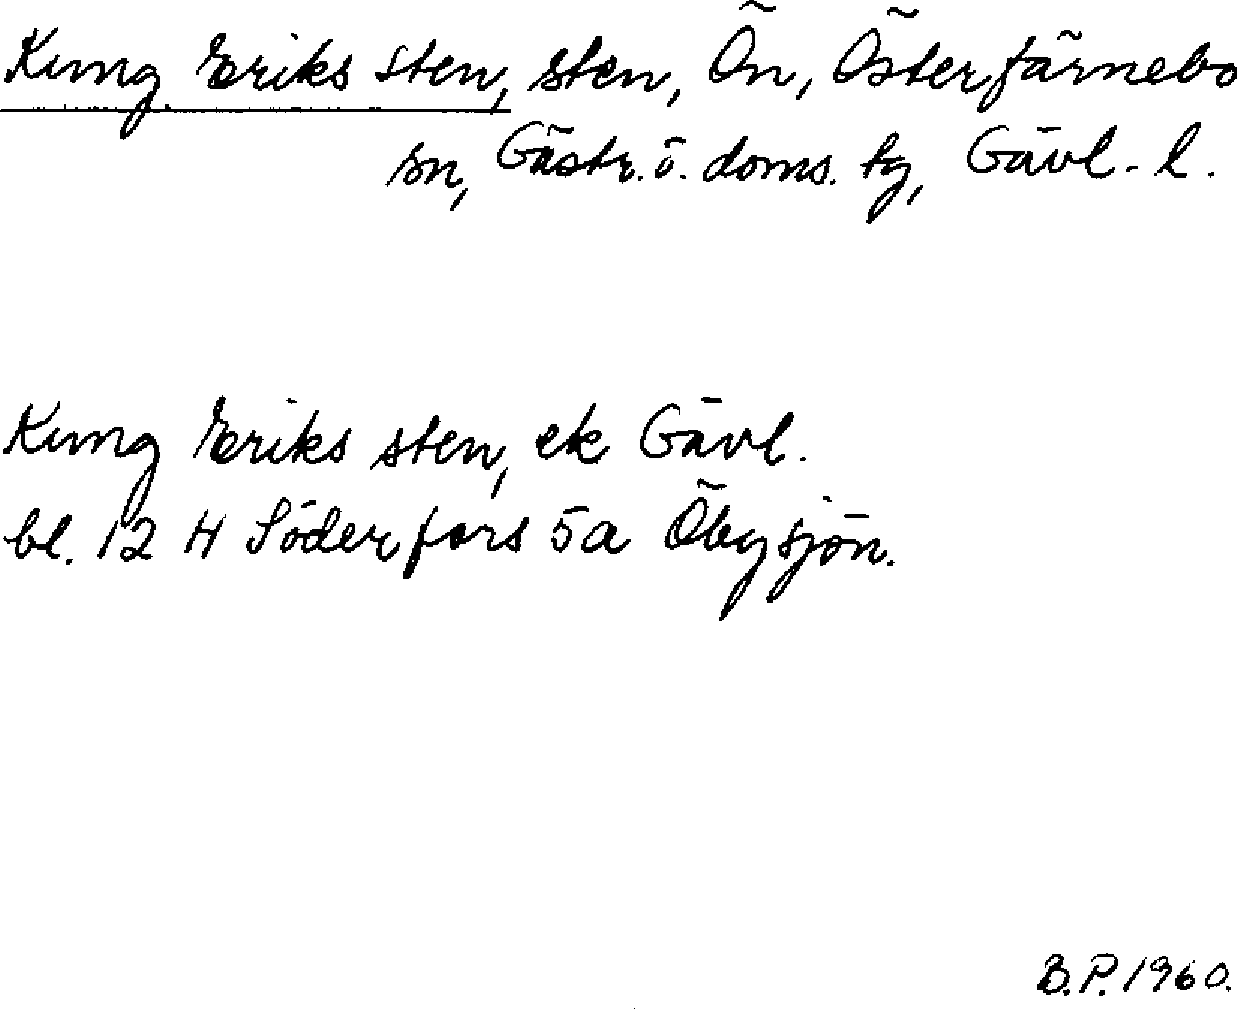 Kung Eriks sten, sten, Ön, Österfärnebo
sn, Gästr. ö. doms. tg, Gävl. l.
Kung Eriks sten, ek Gävl.
bl. 12 H Söderfors 5a Öbysjön.
B.P. 1960.